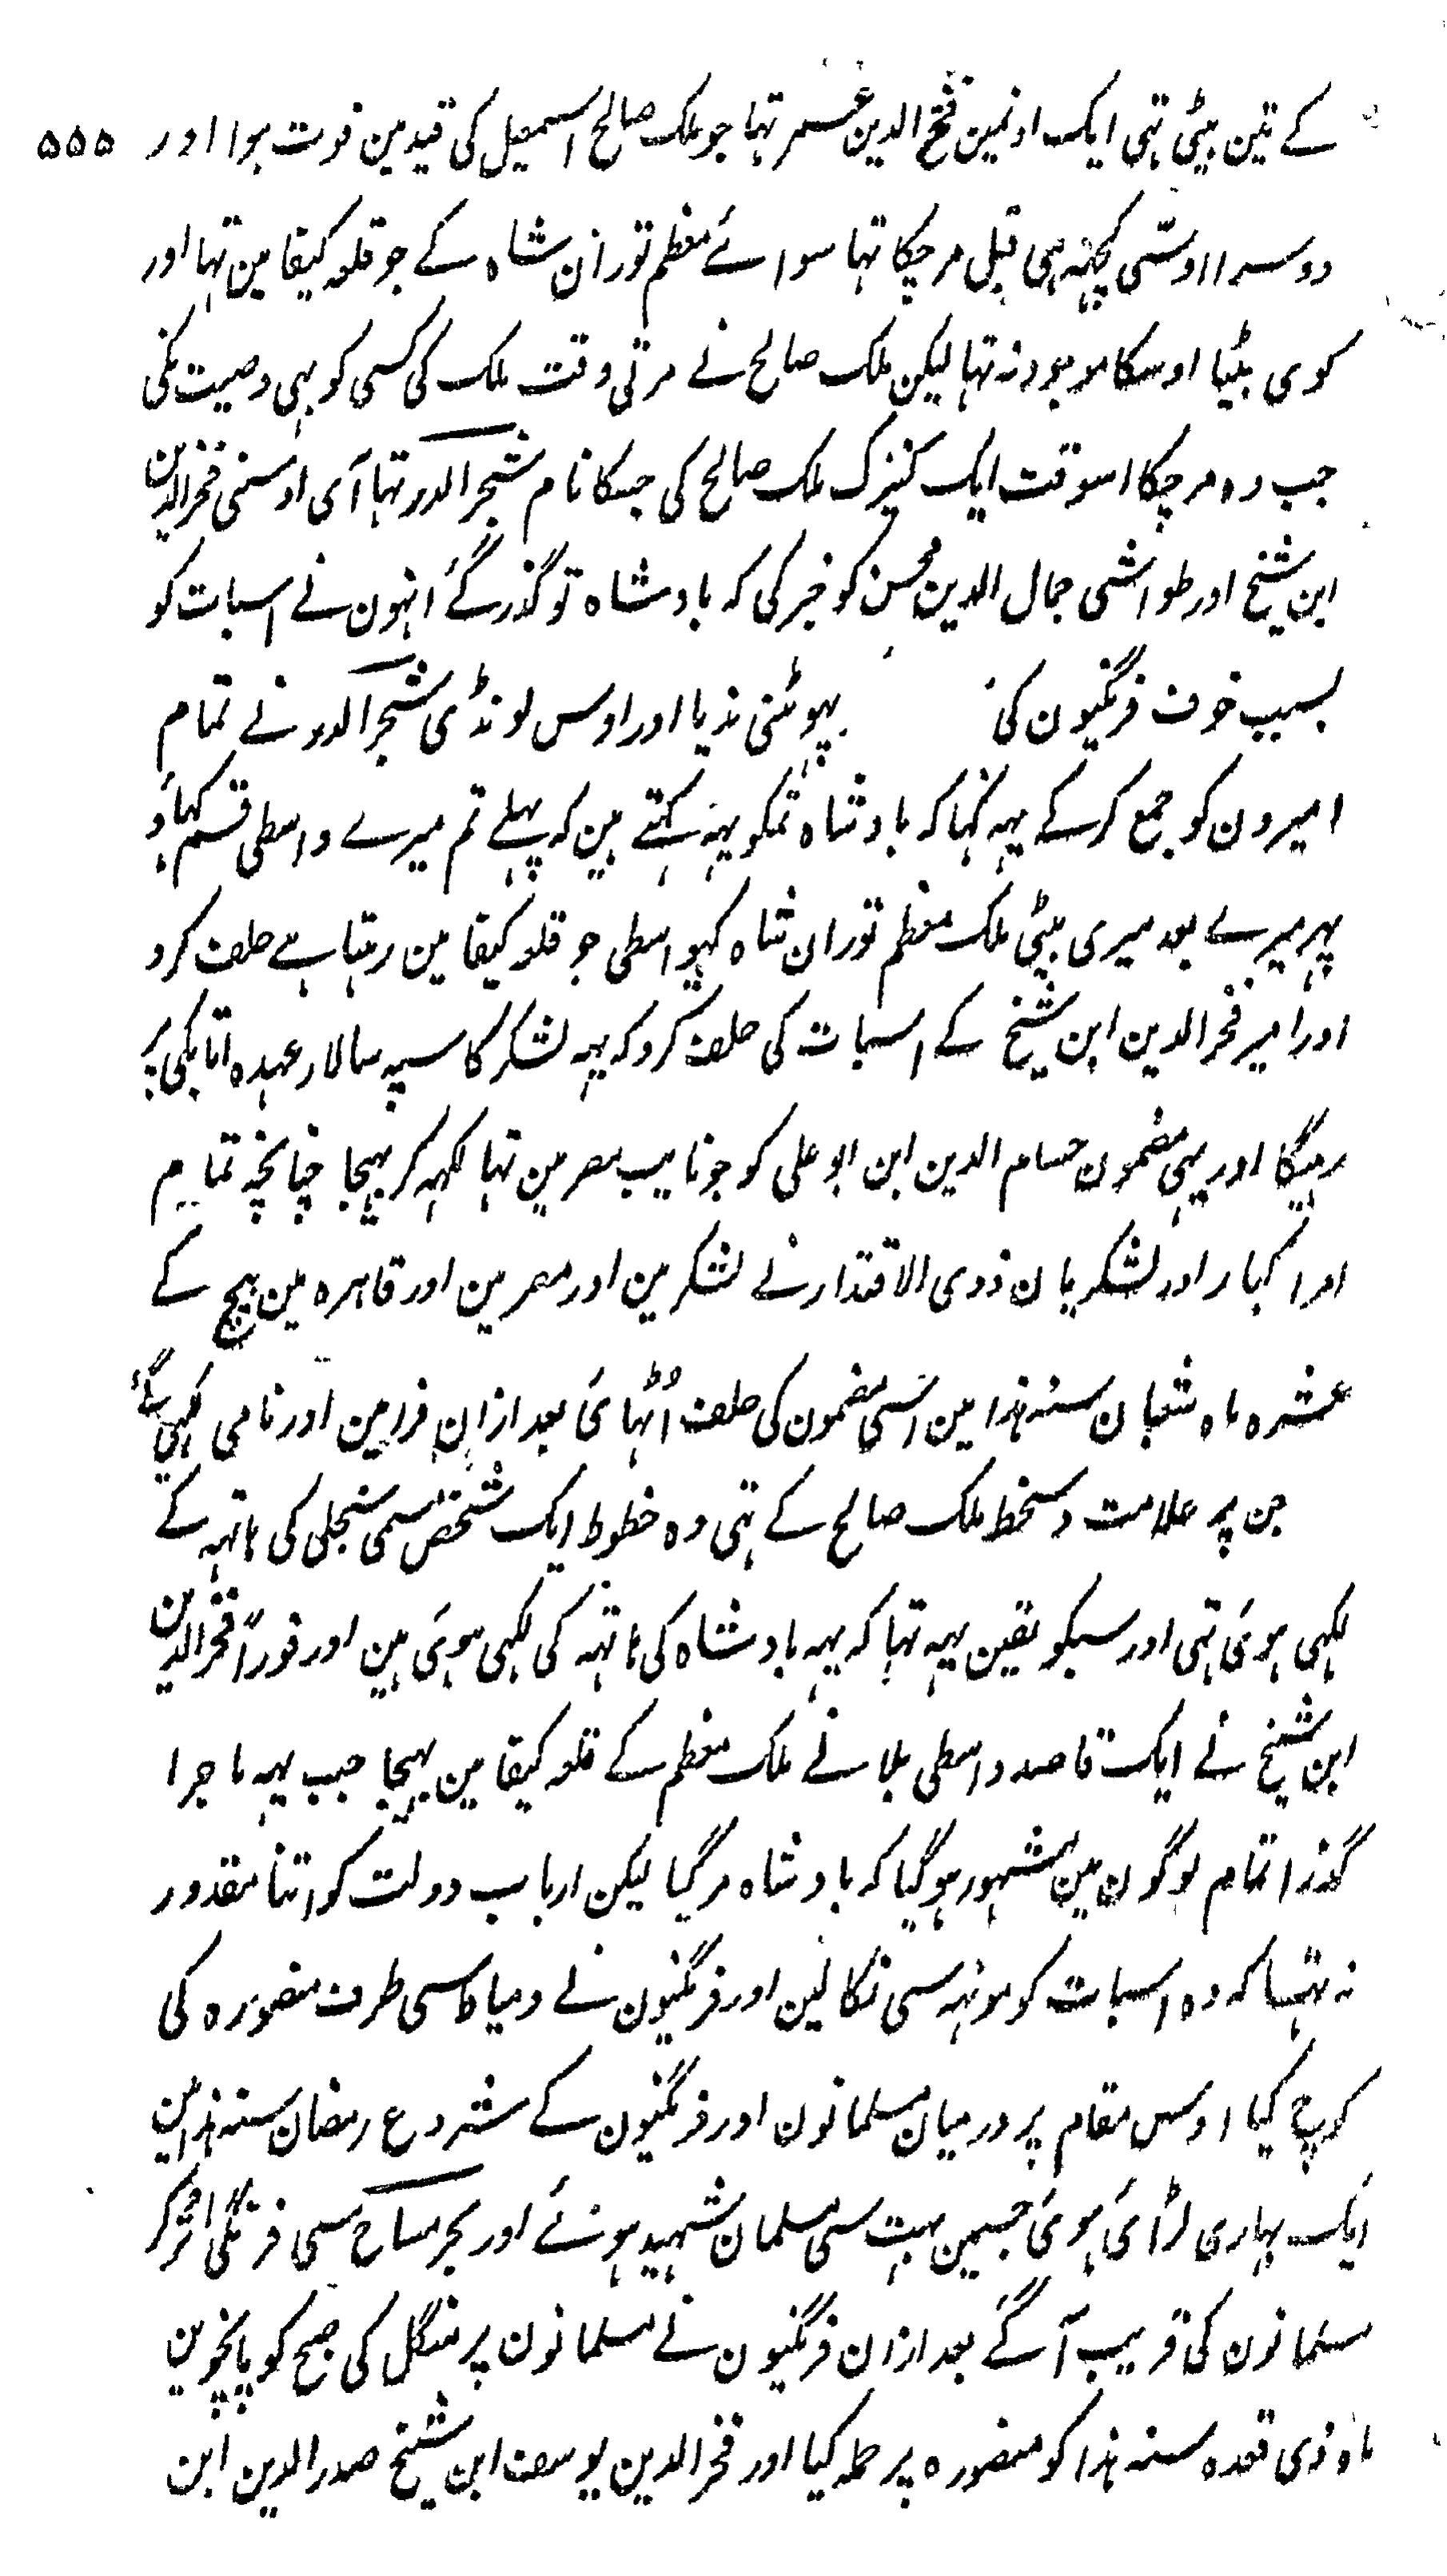 کے تین بیٹی تہی ایک اونمین فتح الدین عمر تہا جو ملک صالح اسمعیل کی قید مین فوت ہوا اور ۵۵۵
دوسرا اوسّی کچہہ ہی قبل مر چکا تہا سوائے معظم توران شاہ کے جو قلعہ کیفا مین تہا اور
کوی بٹیا اوسکا موجود نہ تہا لیکن ملک صالح نے مرتی وقت ملک کی کسی کو بہی وصیت نکی
جب وہ مر چکا اسوقت ایک کنیزک ملک صالح کی جسکا نام شجر الدر تہا آی اوسنی فخر الدین
ابن شیخ اور طواشی جمال الدین محسن کو خبر کی کہ بادشاہ تو گذر گئے اُنہون نے اسبات کو
بسبب خوف فرنگیون کی پہوٹنی ندیا اور اوس لونڈی شجر الدر نے تمام
امیرون کو جمع کر کے یہہ کہا کہ بادشاہ تمکو یہہ کہتے ہین کہ پہلے تم میرے واسطی قسم کہاؤ
پہر میرے بعد میری بیٹی ملک معظم توران شاہ کیواسطی جو قلعہ کیفا مین رہتا ہے حلف کرو
اور امیر فخر الدین ابن شیخ کے اسبات کی حلف کرو کہ یہہ لشکر کا سپہ سالار عہدہ اتابکی پر
رہیگا اور یہی مضمون حسام الدین ابن ابو علی کو جو نایب مصر مین تہا لکہہ کر بہیجا چنانچہ تمام
امرا کبار اور لشکریان ذوی الاقتدار نے لشکر مین اور مصر مین اور قاہرہ مین بیچ کے
عشرہ ماہ شعبان سنہ ہذا مین اسی مضمون کی حلف اُٹہائی بعد ازان فرامین اور نامی لکہی گئے
جن پر علامت دستخط ملک صالح کے تہی وہ خطوط ایک شخص مسمی سنجلی کی ہاتہہ کے
لکہی ہوئی تہی اور سبکو یقین یہہ تہا کہ یہہ بادشاہ کی ہاتہہ کی لکہی ہوئی ہین اور فوراً فخر الدین
ابن شیخ نے ایک قاصد واسطی بلانے ملک معظم کے قلعہ کیفا مین بہیجا جب یہہ ماجرا
گذرا تمام لوگون مین مشہور ہو گیا کہ بادشاہ مر گیا لیکن ارباب دولت کو اتنا مقدور
نہ تہا کہ وہ اسبات کو مونہہ سی نکالین اور فرنگیون نے دمیاط سی طرف منصورہ کی
کوچ کیا اوس مقام پر درمیان مسلمانون اور فرنگیون کے شروع رمضان سنہ ہذا مین
ایک بہاری لڑائی ہوئی جسمین بہت سی مسلمان شہید ہوئے اور بحر مساح سی فرنگی اوتر کر
مسلمانون کی قریب آ گئے بعد ازان فرنگیون نے مسلمانون پر منگل کی صبح کو پانچوین
ماہ ذی قعدہ سنہ ہذا کو منصورہ پر حملہ کیا اور فخر الدین یوسف ابن شیخ صدر الدین ابن